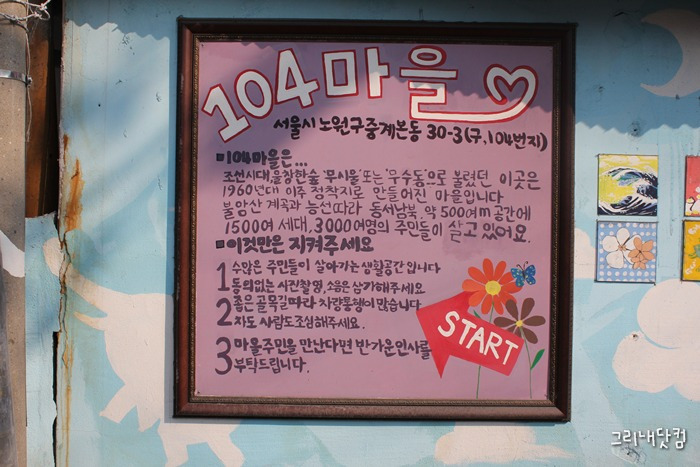 104마을
서울시 노원구중계본동 30-3(구.104번지)
■104마을은...
조선시대, 울창한숲 '무시울' 또는 '무수동'으로 불렸던 이곳은
1960년대 이주 정착지로 만들어진 마을입니다
불암산 계곡과 능선따라 동서남북. 약 500여m 공간에
1500여 세대, 3000여명의 주민들이 살고 있어요.
■이것만은 지켜주세요
1 수많은 주민들이 살아가는 생활공간입니다
동의없는 사진촬영, 소음은 삼가해주세요
2 좁은 골목길따라 차량통행이 많습니다
차도 사람도조심해주세요.
3 마을주민을 만난다면 반가운인사를
부탁드립니다.
START
그리내닷컴